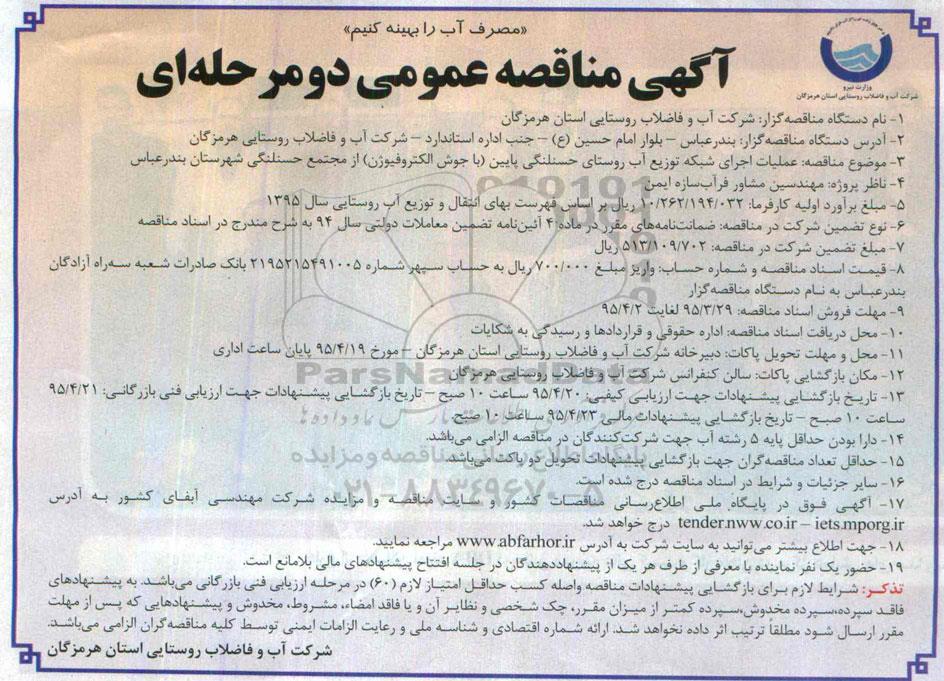 «مصرف آب را بهینه کنیم»
آگهی مناقصه عمومی دو مرحله‌ای
وزارت نیرو
شرکت آب و فاضلاب روستایی استان هرمزگان
۱- نام دستگاه مناقصه‌گزار: شرکت آب و فاضلاب روستایی استان هرمزگان
۲- آدرس دستگاه مناقصه‌گزار: بندرعباس – بلوار امام حسین (ع) – جنب اداره استاندارد – شرکت آب و فاضلاب روستایی هرمزگان
۳- موضوع مناقصه: عملیات اجرای شبکه توزیع آب روستای حسنلنگی پایین (با جوش الکتروفیوژن) از مجتمع حسنلنگی شهرستان بندرعباس
۴- ناظر پروژه: مهندسین مشاور فرآب‌سازه ایمن
۵- مبلغ برآورد اولیه کارفرما: ۱۰/۲۶۲/۱۹۴/۰۳۲ ریال بر اساس فهرست بهای انتقال و توزیع آب روستایی سال ۱۳۹۵
۶- نوع تضمین شرکت در مناقصه: ضمانت‌نامه‌های مقرر در ماده ۴ آئین‌نامه تضمین معاملات دولتی سال ۹۴ به شرح مندرج در اسناد مناقصه
۷- مبلغ تضمین شرکت در مناقصه: ۵۱۳/۱۰۹/۷۰۲ ریال
۸- قیمت اسناد مناقصه و شماره حساب: واریز مبلغ ۷۰۰/۰۰۰ ریال به حساب سپهر شماره ۲۱۹۵۲۱۵۴۹۱۰۰۵ بانک صادرات شعبه سه‌راه آزادگان
بندرعباس به نام دستگاه مناقصه‌گزار
۹- مهلت فروش اسناد مناقصه: ۹۵/۳/۲۹ لغایت ۹۵/۴/۲
۱۰- محل دریافت اسناد مناقصه: اداره حقوقی و قراردادها و رسیدگی به شکایات
۱۱- محل و مهلت تحویل پاکات: دبیرخانه شرکت آب و فاضلاب روستایی استان هرمزگان – مورخ ۹۵/۴/۱۹ پایان ساعت اداری
۱۲- مکان بازگشایی پاکات: سالن کنفرانس شرکت آب و فاضلاب روستایی هرمزگان
۱۳- تاریخ بازگشایی پیشنهادات جهت ارزیابی کیفی: ۹۵/۴/۲۰ ساعت ۱۰ صبح – تاریخ بازگشایی پیشنهادات جهت ارزیابی فنی بازرگانی: ۹۵/۴/۲۱
ساعت ۱۰ صبح – تاریخ بازگشایی پیشنهادات مالی: ۹۵/۴/۲۳ ساعت ۱۰ صبح
۱۴- دارا بودن حداقل پایه ۵ رشته آب جهت شرکت‌کنندگان در مناقصه الزامی می‌باشد.
۱۵- حداقل تعداد مناقصه‌گران جهت بازگشایی پیشنهادات تحویل دو پاکت می‌باشد.
۱۶- سایر جزئیات و شرایط در اسناد مناقصه درج شده است.
۱۷- آگهی فوق در پایگاه ملی اطلاع‌رسانی مناقصات کشور و سایت مناقصه و مزایده شرکت مهندسی آبفای کشور به آدرس
tender.nww.co.ir – iets.mporg.ir درج خواهد شد.
۱۸- جهت اطلاع بیشتر می‌توانید به سایت شرکت به آدرس www.abfarhor.ir مراجعه نمایید.
۱۹- حضور یک نفر نماینده با معرفی از طرف هر یک از پیشنهاددهندگان در جلسه افتتاح پیشنهادهای مالی بلامانع است.
تذکر: شرایط لازم برای بازگشایی پیشنهادات مناقصه واصله کسب حداقل امتیاز لازم (۶۰) در مرحله ارزیابی فنی بازرگانی می‌باشد. به پیشنهادهای
فاقد سپرده،سپرده مخدوش،سپرده کمتر از میزان مقرر، چک شخصی و نظایر آن و یا فاقد امضاء، مشروط، مخدوش و پیشنهادهایی که پس از مهلت
مقرر ارسال شود مطلقاً ترتیب اثر داده نخواهد شد. ارائه شماره اقتصادی و شناسه ملی و رعایت الزامات ایمنی توسط کلیه مناقصه‌گران الزامی می‌باشد.
شرکت آب و فاضلاب روستایی استان هرمزگان
ParsNamadData
پایگاه اطلاع رسانی مناقصه و مزایده
۰۲۱-۸۸۳۴۹۶۷۰